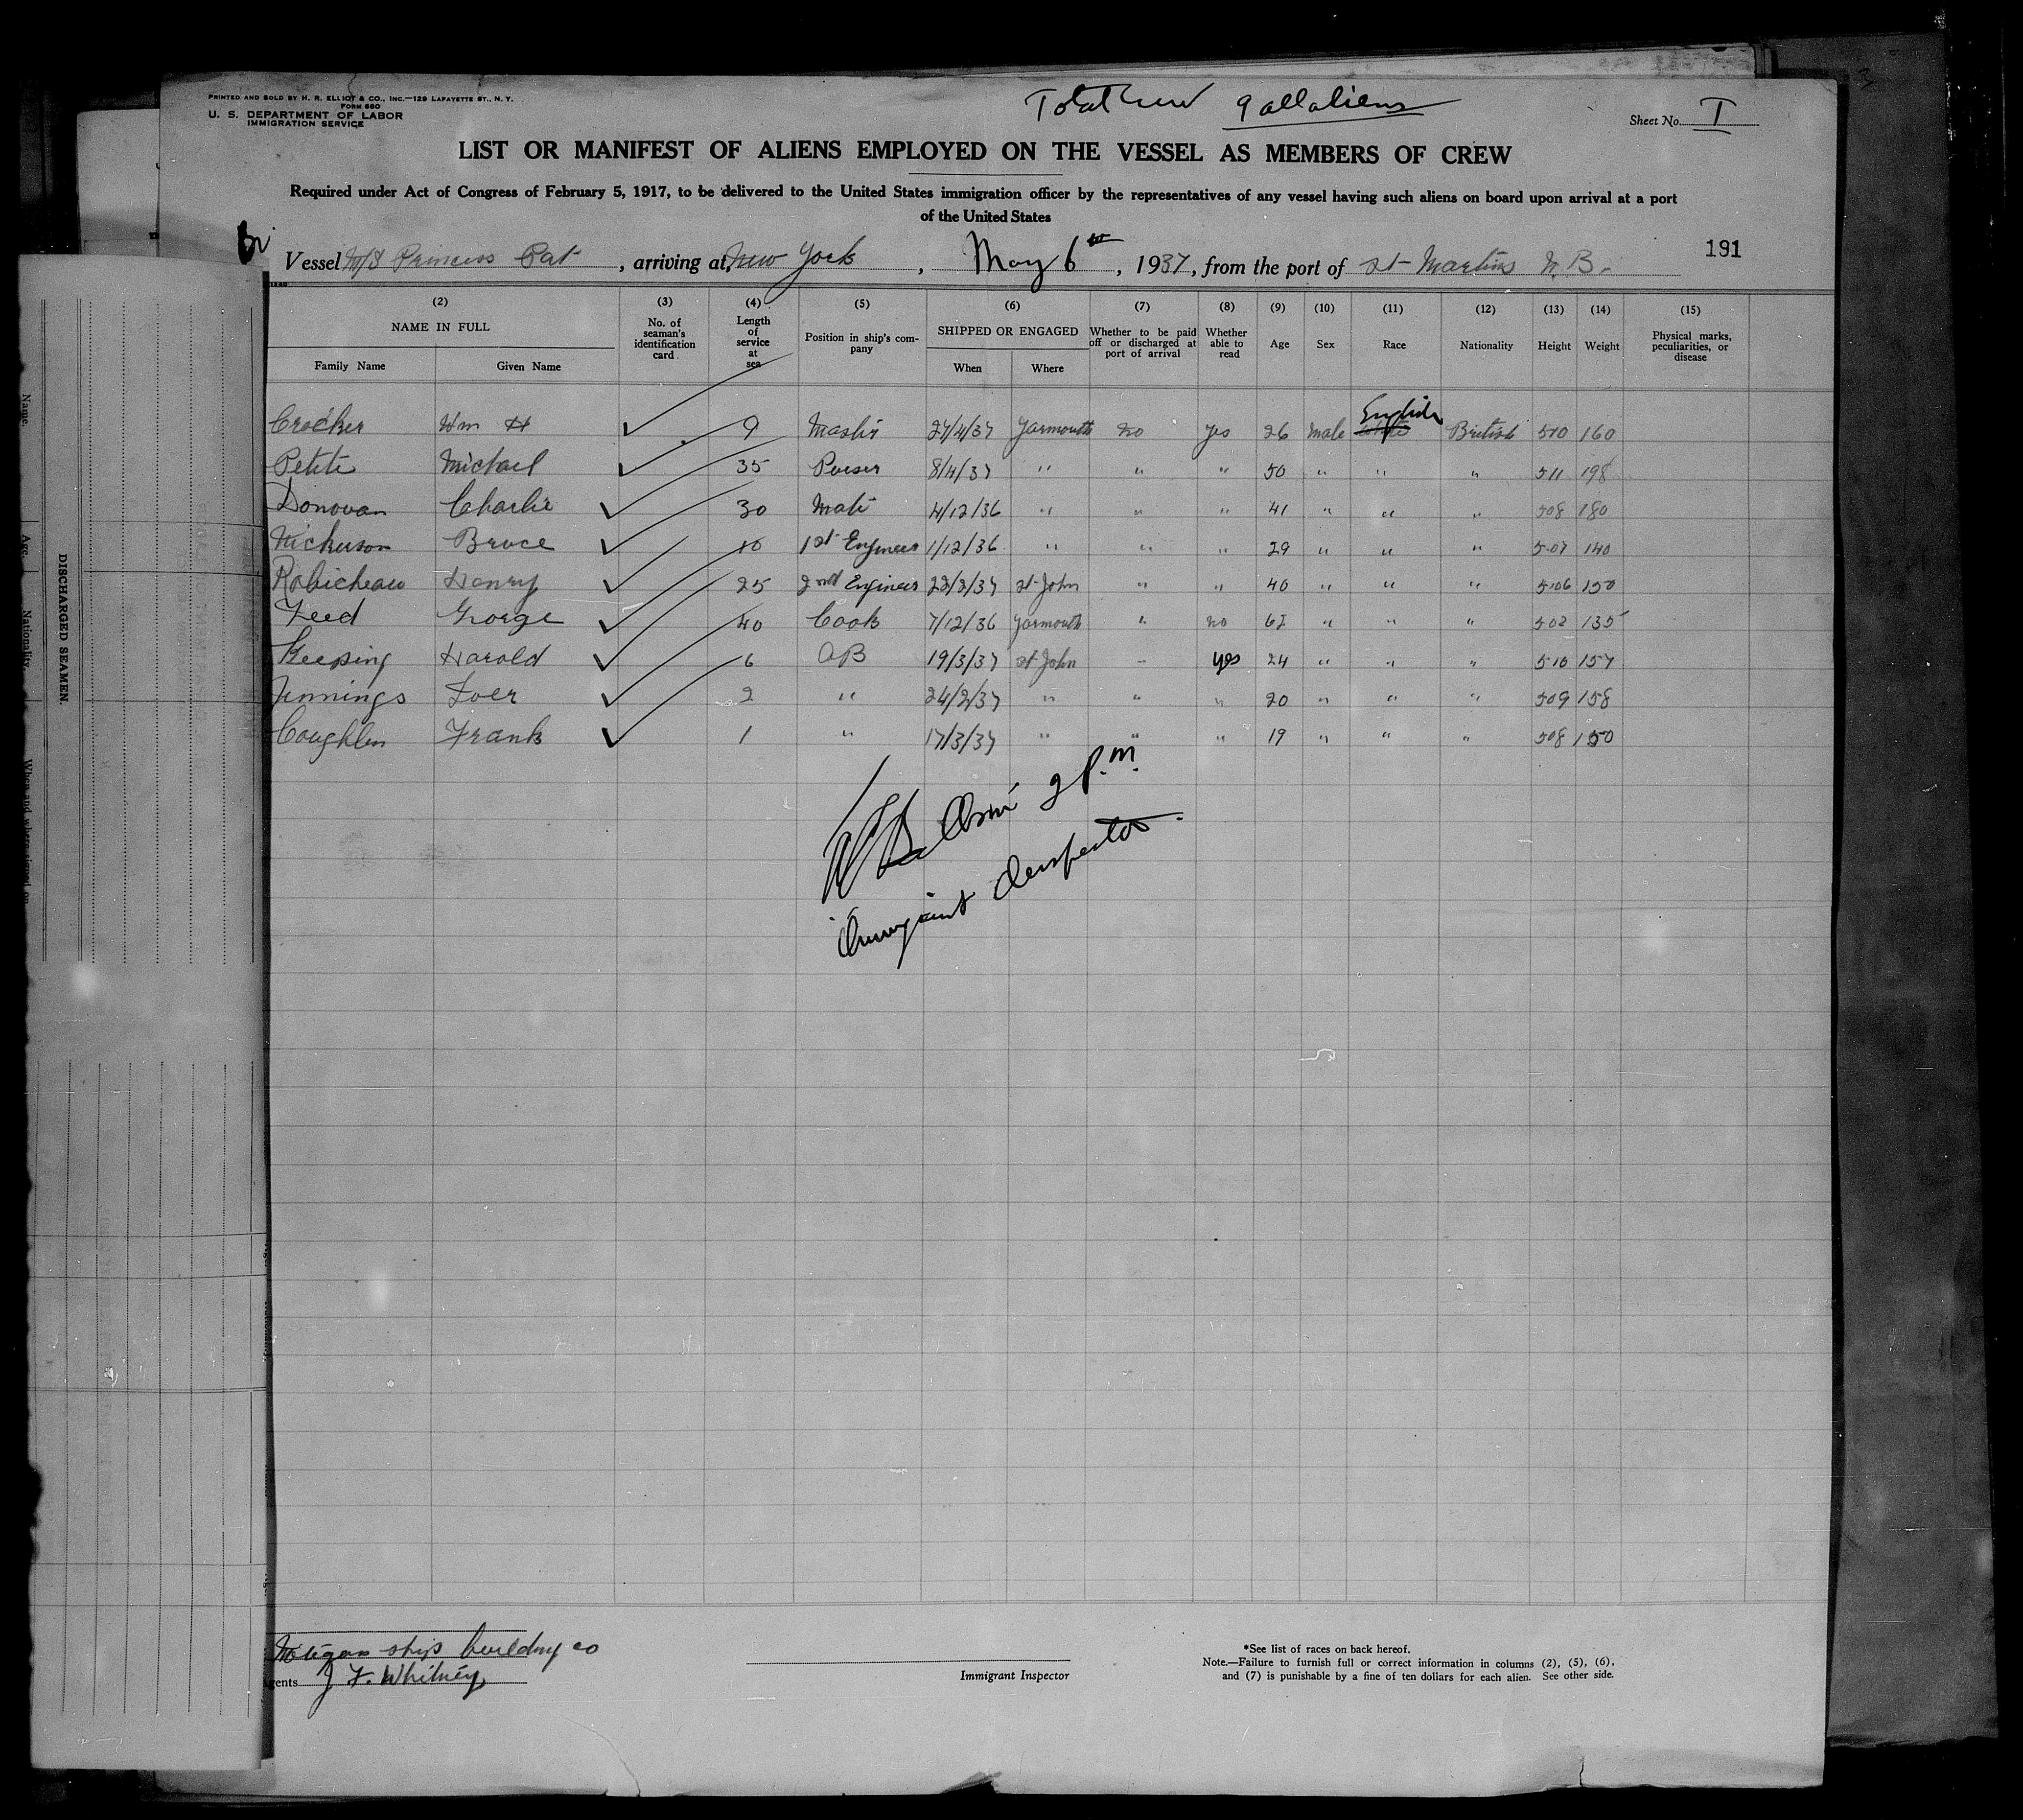 PRINTED AND SOLD BY H. R. ELLIOT & CO., INC.—129 LAFAYETTE ST., N. Y.
FORM 680
U. S. DEPARTMENT OF LABOR
IMMIGRATION SERVICE
Total Crew 9 all aliens
Sheet No. I
LIST OR MANIFEST OF ALIENS EMPLOYED ON THE VESSEL AS MEMBERS OF CREW
Required under Act of Congress of February 5, 1917, to be delivered to the United States immigration officer by the representatives of any vessel having such aliens on board upon arrival at a port
of the United States
Br
Vessel M/S Princess Pat, arriving at New York, May 6th, 1937, from the port of St Martins N. B.
191
(2) (3) (4) (5) (6) (7) (8) (9) (10) (11) (12) (13) (14) (15)
NAME IN FULL No. of seaman's identification card Length of service at sea Position in ship's company SHIPPED OR ENGAGED Whether to be paid off or discharged at port of arrival Whether able to read Age Sex Race Nationality Height Weight Physical marks, peculiarities, or disease
Family Name Given Name When Where
Crocker Wm H ✓ 9 Master 27/4/37 Yarmouth no yes 26 Male English British 510 160
Petite Michael ✓ 35 Purser 8/4/37 " " " 50 " " " 511 198
Donovan Charlie ✓ 30 Mate 4/12/36 " " " 41 " " " 508 180
Nickerson Bruce ✓ 10 1st Engineer 1/12/36 " " " 29 " " " 507 140
Robicheau Henry ✓ 25 2nd Engineer 22/3/37 St John " " 40 " " " 506 150
Feed George ✓ 40 Cook 7/12/36 Yarmouth " no 62 " " " 502 135
Keeping Harold ✓ 6 AB 19/3/37 St John " yes 24 " " " 510 157
Jennings ✓ 2 " 24/2/37 " " " 20 " " " 509 158
Coughlin Frank ✓ 1 " 17/3/37 " " " 19 " " " 508 150
2 P.M.
Immigrant Inspector
ship building co
Agents J F. Whitney
Immigrant Inspector
*See list of races on back hereof.
Note.—Failure to furnish full or correct information in columns (2), (5), (6),
and (7) is punishable by a fine of ten dollars for each alien. See other side.
DISCHARGED SEAMEN.
Name.
Age.
Nationality.